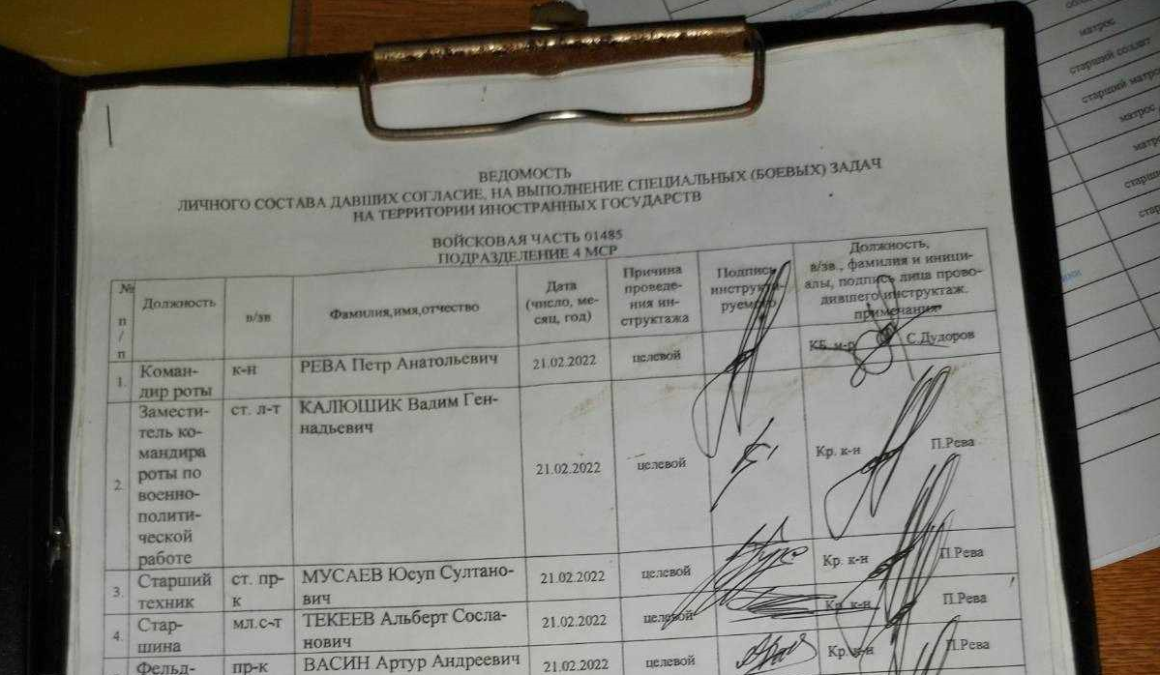 ВЕДОМОСТЬ
ЛИЧНОГО СОСТАВА ДАВШИХ СОГЛАСИЕ, НА ВЫПОЛНЕНИЕ СПЕЦИАЛЬНЫХ (БОЕВЫХ) ЗАДАЧ
НА ТЕРРИТОРИИ ИНОСТРАННЫХ ГОСУДАРСТВ
ВОЙСКОВАЯ ЧАСТЬ 01485
ПОДРАЗДЕЛЕНИЕ 4 МСР
№
п
/
п
Должность
в/зв
Фамилия,имя,отчество
Дата
(число, ме-
сяц, год)
Причина
проведе-
ния ин-
структажа
Подпись
инструкти-
руемого
Должность,
в/зв., фамилия и иници-
алы, подпись лица прово-
дившего инструктаж.
примечания
1.
Коман-
дир роты
к-н
РЕВА Петр Анатольевич
21.02.2022
целевой
КБ. м-р
С.Дудоров
2.
Замести-
тель ко-
мандира
роты по
военно-
полити-
ческой
работе
ст. л-т
КАЛЮШИК Вадим Ген-
надьевич
21.02.2022
целевой
Кр. к-н
П.Рева
3.
Старший
техник
ст. пр-
к
МУСАЕВ Юсуп Султано-
вич
21.02.2022
целевой
Кр. к-н
П.Рева
4.
Стар-
шина
мл.с-т
ТЕКЕЕВ Альберт Сосла-
нович
21.02.2022
целевой
Кр. к-н
П.Рева
Фельд-
пр-к
ВАСИН Артур Андреевич
21.02.2022
целевой
Кр. к-н
П.Рева
матрос
старший солдат
старший матрос
матрос